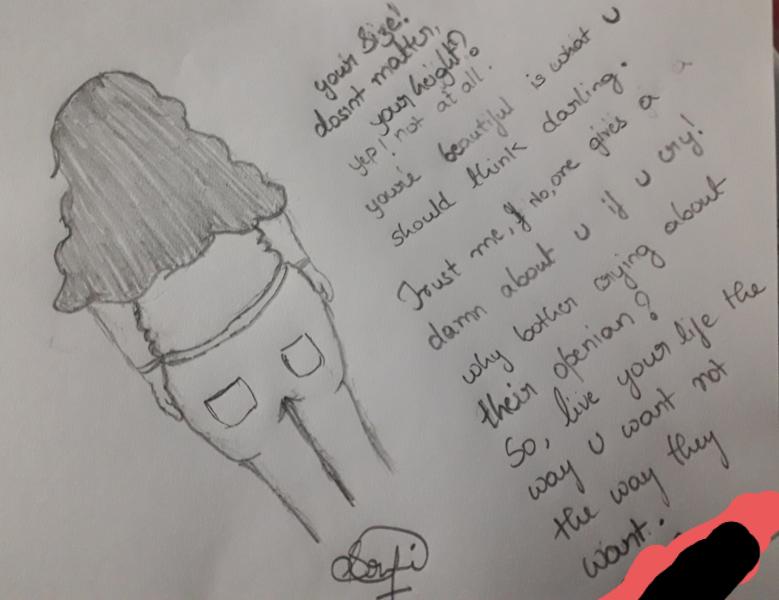 your size!
dosint matter,
your height?
yep! not at all.
you're beautiful is what u
should think darling.
Trust me, if no,one gives a a
damn about u if u cry!
why bother crying about
their openian?
So, live your life the
way u want not
the way they
want.